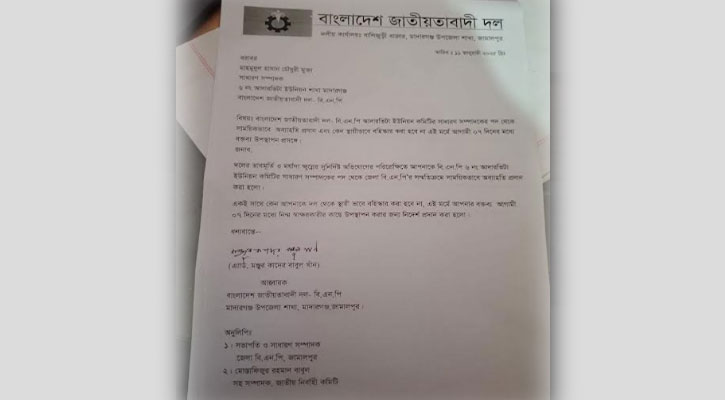 বাংলাদেশ জাতীয়তাবাদী দল
দলীয় কার্যালয়ঃ বালিজুড়ী বাজার, মাদারগঞ্জ উপজেলা শাখা, জামালপুর
তারিখ : ১১ জানুয়ারী ২০২৫ খ্রিঃ
বরাবর
মাহমুদুল হাসান চৌধুরী মুক্তা
সাধারণ সম্পাদক
৬ নং আদারভিটা ইউনিয়ন শাখা মাদারগঞ্জ
বাংলাদেশ জাতীয়তাবাদী দল- বি.এন.পি
বিষয়ঃ বাংলাদেশ জাতীয়তাবাদী দল- বি.এন.পি আদারভিটা ইউনিয়ন কমিটির সাধারণ সম্পাদকের পদ থেকে
সাময়িকভাবে অব্যাহতি প্রদান এবং কেন স্থায়ীভাবে বহিস্কার করা হবে না এই মর্মে আগামী ০৭ দিনের মধ্যে
বক্তব্য উপস্থাপন প্রসঙ্গে।
জনাব,
দলের ভাবমূর্তি ও মর্যাদা ক্ষুন্নের সুনির্দিষ্ট অভিযোগের পরিপ্রেক্ষিতে আপনাকে বি.এন.পি ৬ নং আদারভিটা
ইউনিয়ন কমিটির সাধারণ সম্পাদকের পদ থেকে জেলা বি.এন.পি'র সম্মতিক্রমে সাময়িকভাবে অব্যাহতি প্রদান
করা হলো।
একই সাথে কেন আপনাকে দল থেকে স্থায়ী ভাবে বহিস্কার করা হবে না, এই মর্মে আপনার বক্তব্য আগামী
০৭ দিনের মধ্যে নিম্ন স্বাক্ষরকারীর কাছে উপস্থাপন করার জন্য নির্দেশ প্রদান করা হলো।
ধন্যবাদান্তে-
(এ্যাড. মঞ্জুর কাদের বাবুল খাঁন)
আহবায়ক
বাংলাদেশ জাতীয়তাবাদী দল- বি.এন.পি
মাদারগঞ্জ উপজেলা শাখা, মাদারগঞ্জ,জামালপুর।
অনুলিপিঃ
১। সভাপতি ও সাধারণ সম্পাদক
জেলা বি.এন.পি, জামালপুর
২। মোস্তাফিজুর রহমান বাবুল
সহ সম্পাদক, জাতীয় নির্বাহী কমিটি